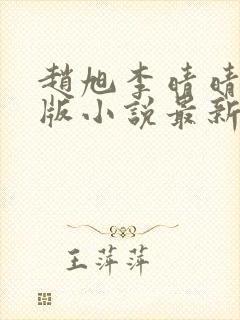 趙旭李晴晴
版小說最新
王萍萍